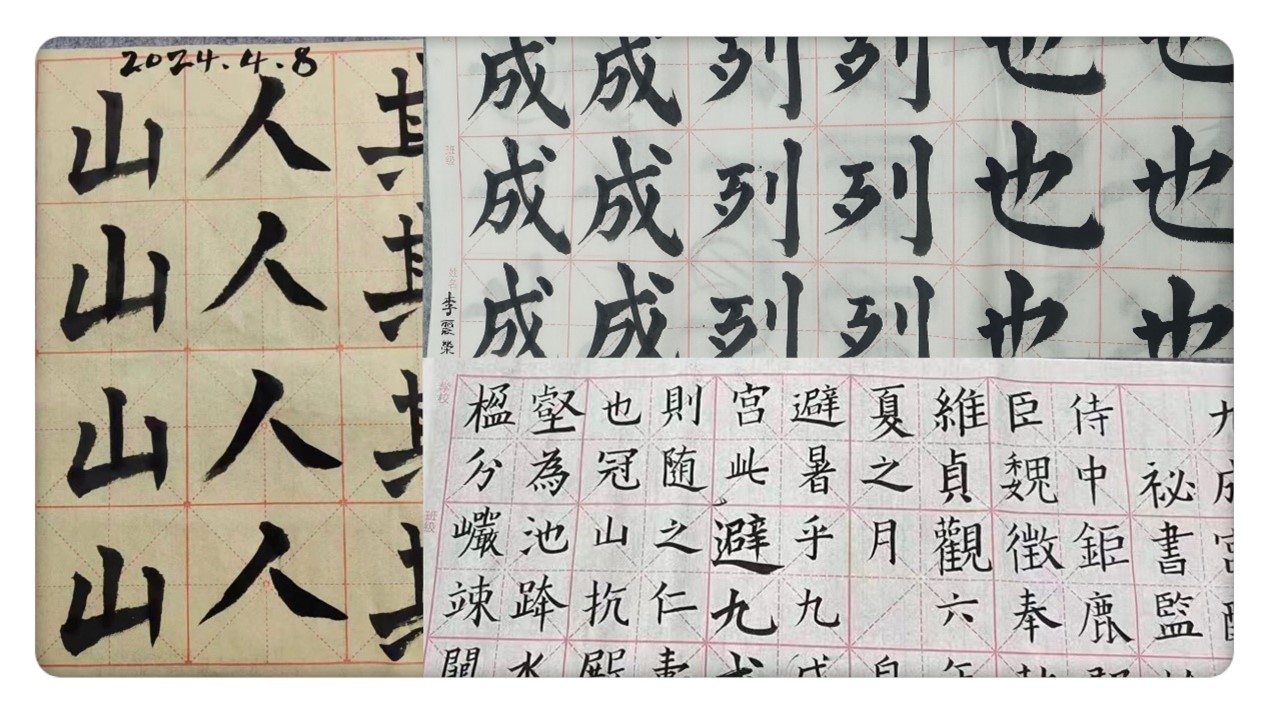 2024.4.8
山人其
山人其
山人其
山人其
成成列列也也
班级
成成列列也也
姓名 李
成成列列也也
学校
班级
九成宫
祕書監
侍中鉅鹿郡
臣魏徵奉勅
維貞觀六年
夏之月
避暑乎九成
宫此避九成
則随之仁壽
也冠山抗殿
壑為池跨水
楹分巖竦闕